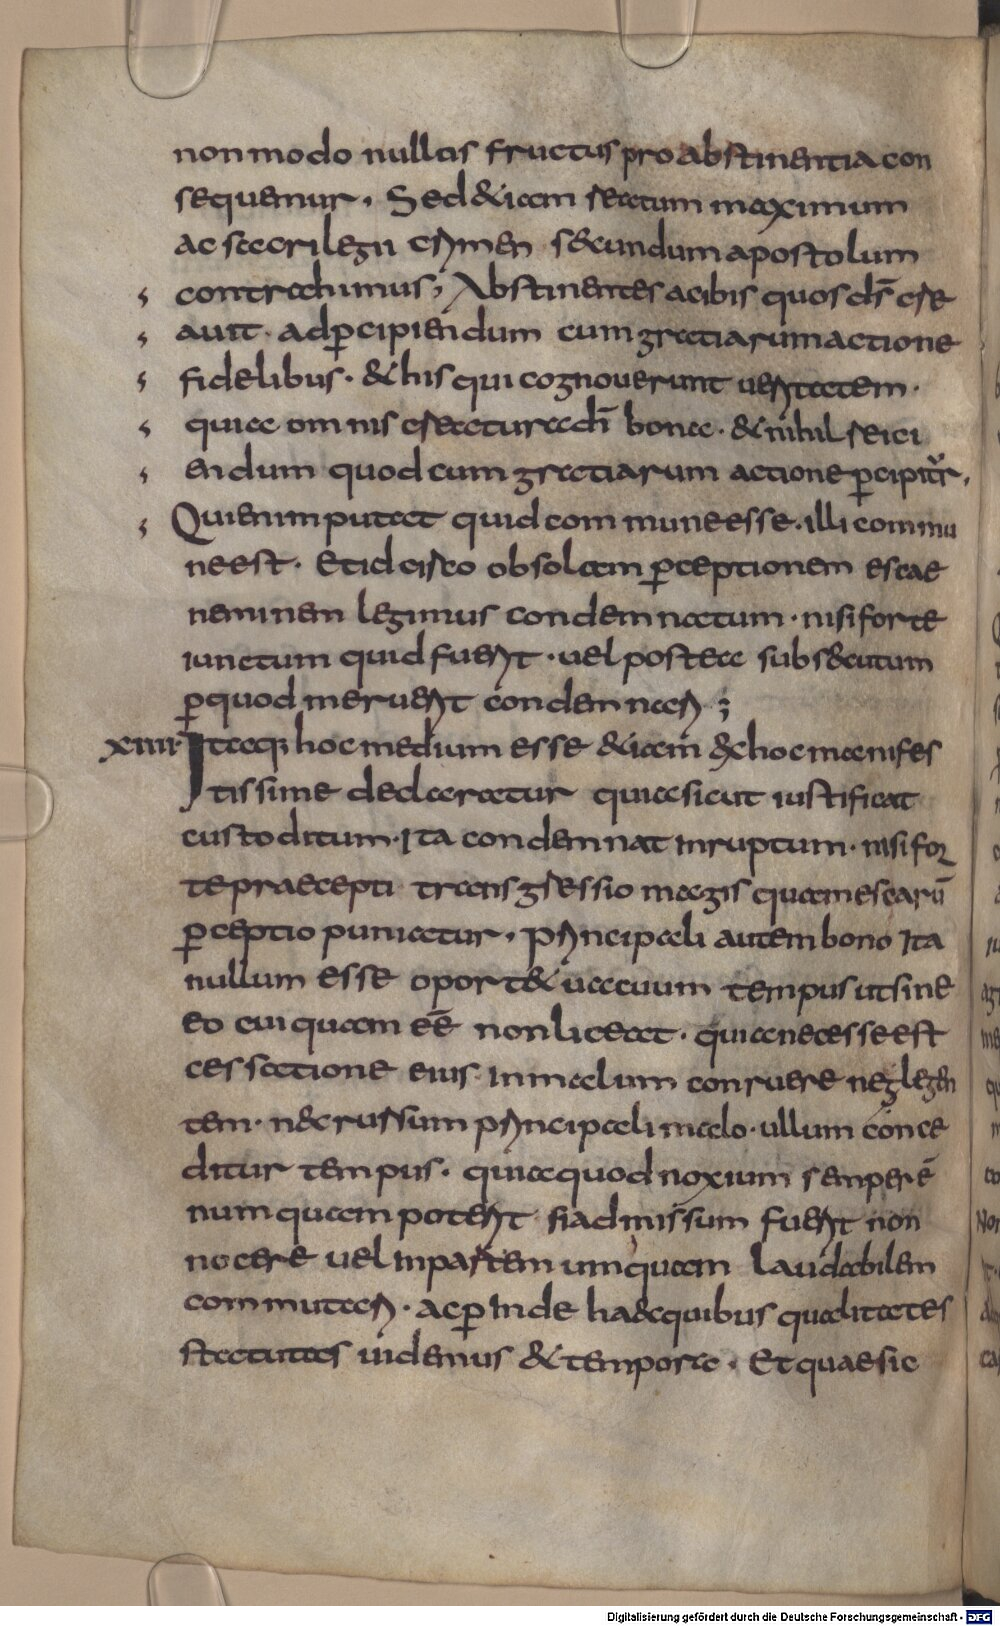 non modo nullus fructus pro abstinentia con
sequemur. Sed & iam reatum maximum
ac sacrilegii crimen s&cundum apostolum
contrahimus; Abstinentes a cibis quos d̄s cre
auit. ad p̱cipiendum cum gratiarum actione
fidelibus. & his qui cognouerunt ueritatem.
quia omnis creatura dī bona. & nihil reici
endum quod cum gratiarum actione p̱cipitur.
Qui enim putat quid commune esse. illi commu
ne est. Et idcirco ob solam p̱ceptionem escae
neminem legimus condemnatum. nisi forte
iunctum quid fuerit. uel postea subs&cutum
p̱ quod meruerit condemnari;
XIIII Itaq; hoc medium esse & iam & hoc manifes
tissime declaratur quia sicut iustificat
custoditum. Ita condemnat inruptum. nisi for
te praecepti transgressio magis quam escarū
p̱ceptio puniatur. Principali autem bono Ita
nullum esse oport& uacuum tempus ut sine
eo cuiquam eē non liceat. quia necesse est
cessatione eius in malum conruere neglegen
tem. n&c rursum principali malo. ullum conce
ditur tempus. quia quod noxium semper ē
numquam poterit si admissum fuerit non
nocere uel in partem umquam laudabilem
commutari. ac p̱inde haec quibus qualitates
statutas uidemus & tempora. Et quae sic
Digitalisierung gefördert durch die Deutsche Forschungsgemeinschaft - DFG